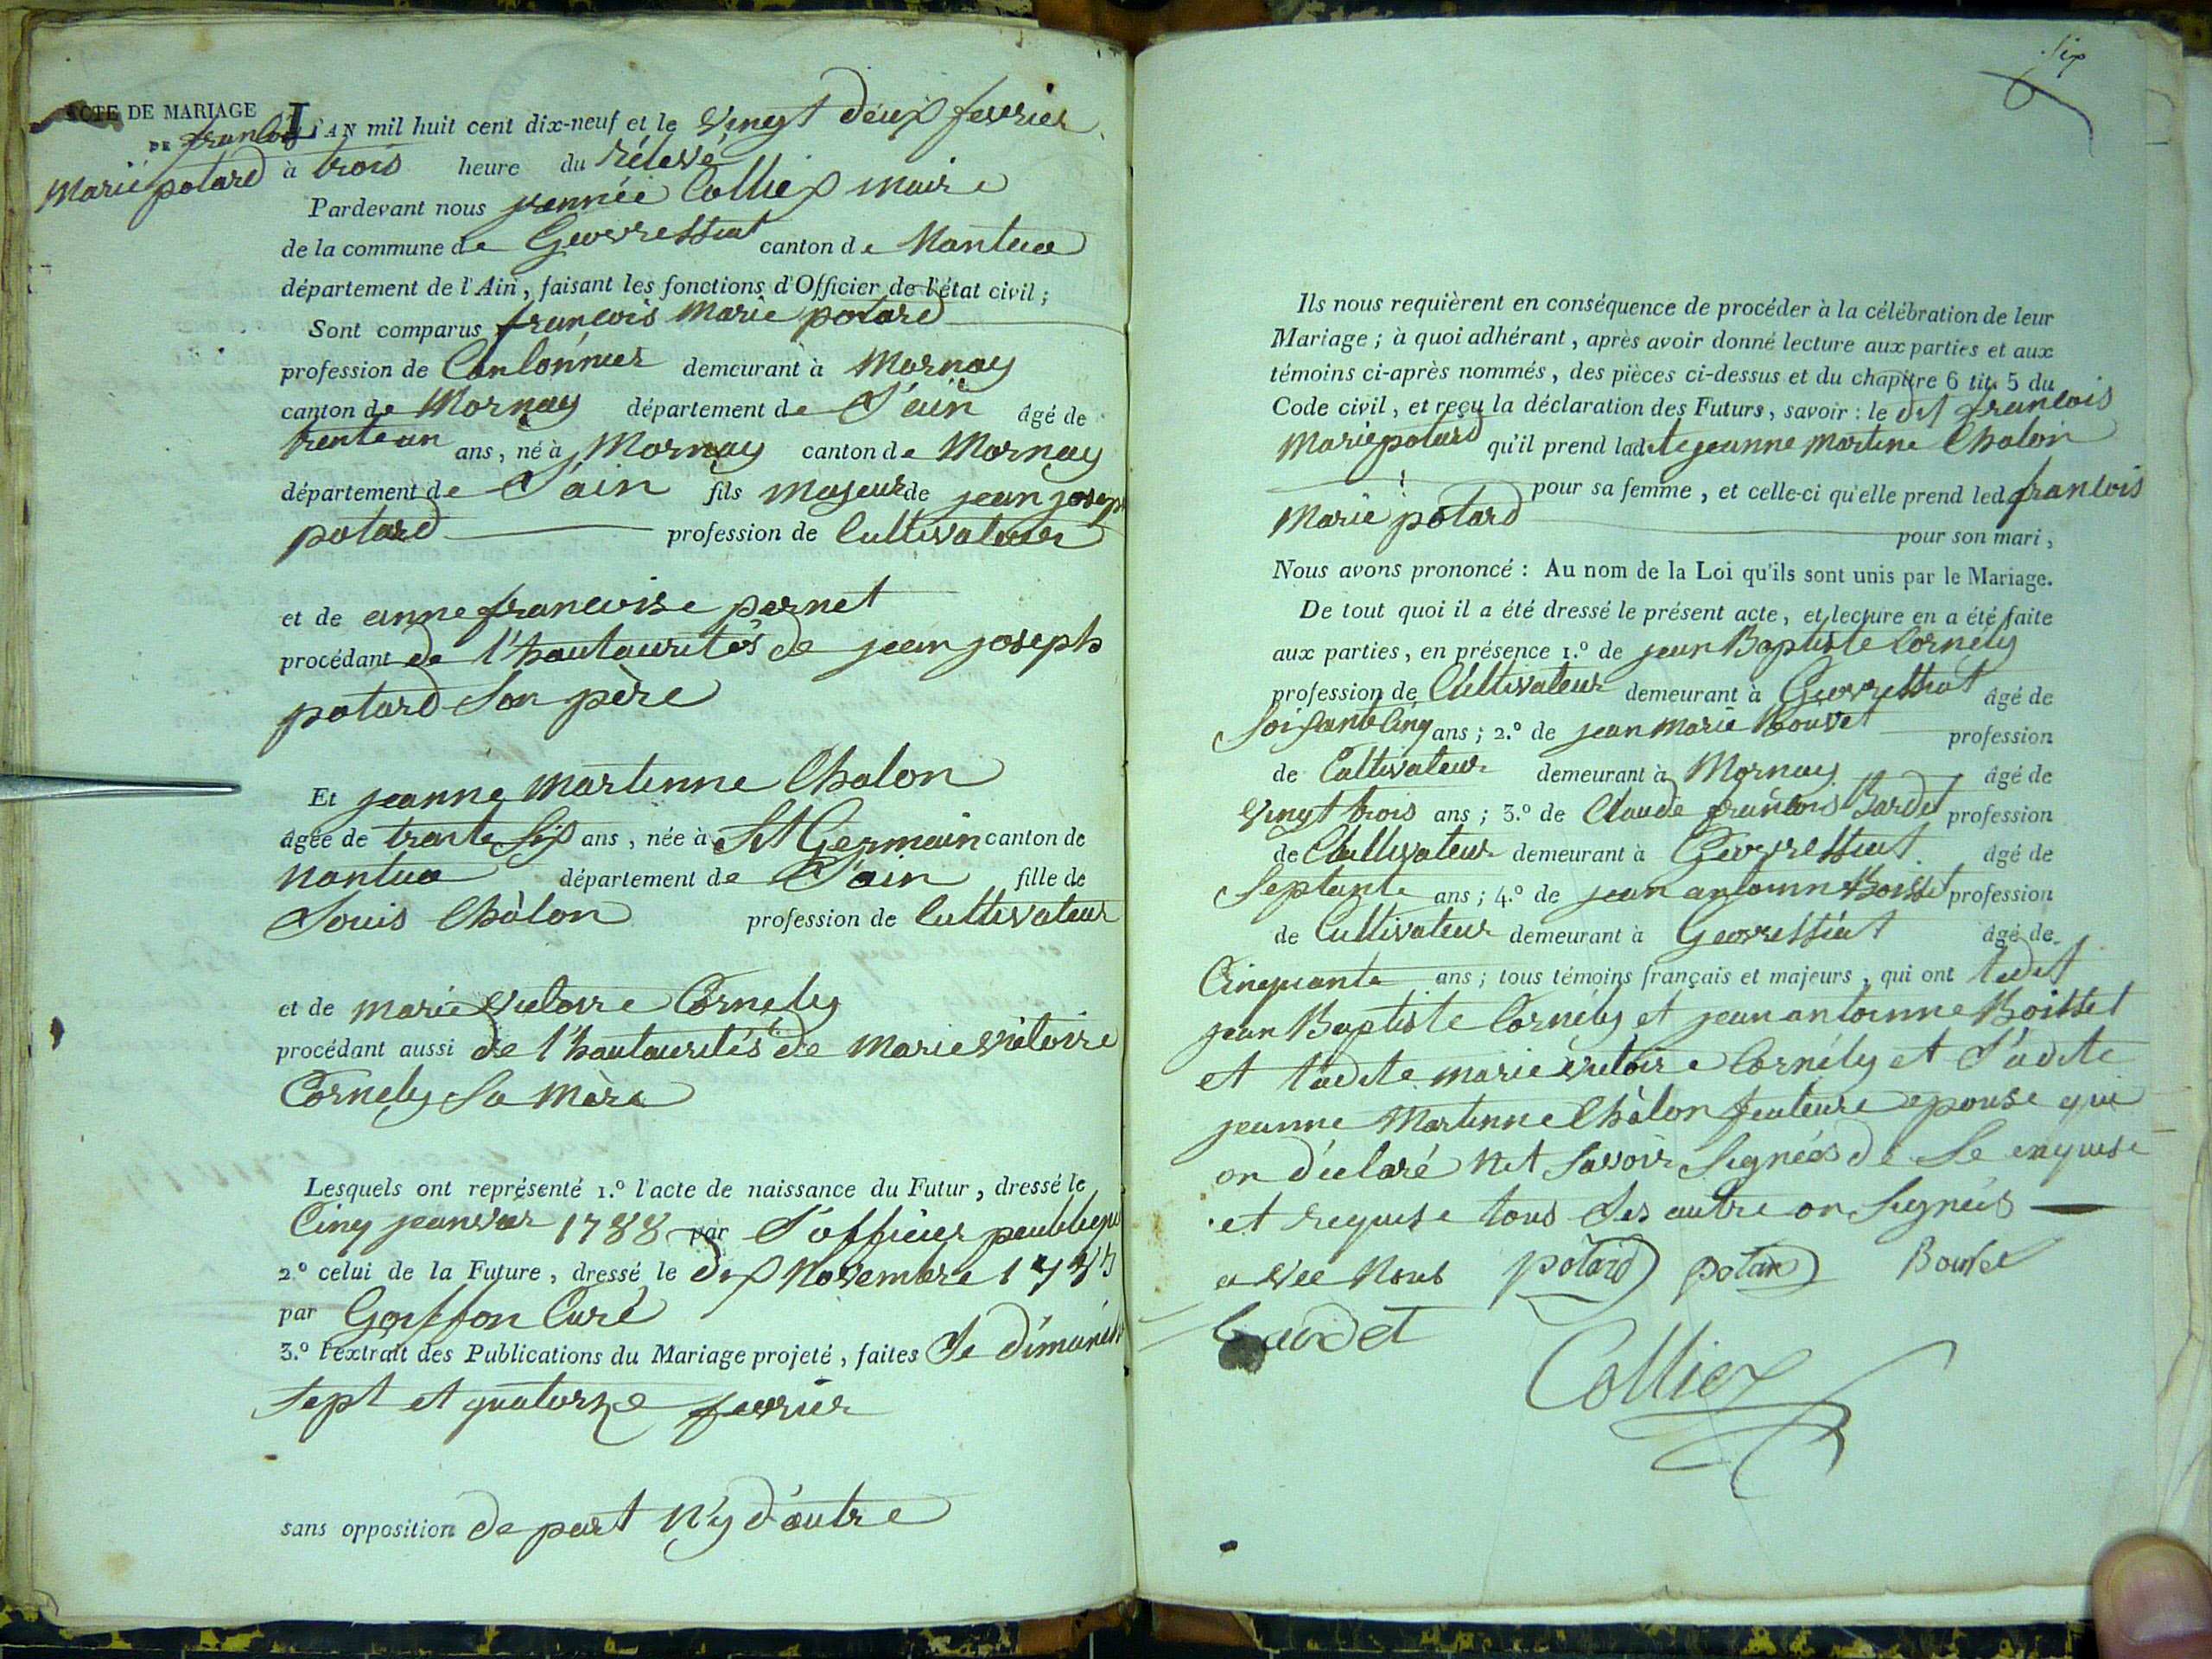 ACTE DE MARIAGE
DE françois
Marie potard
L'AN mil huit cent dix-neuf et le vingt deux fevrier
à trois heure du rélevé
Pardevant nous Collier maire
de la commune de Geovressiat canton de Nantua
département de l'Ain, faisant les fonctions d'Officier de l'état civil;
Sont comparus françois Marie potard
profession de demeurant à Mornay
canton de Mornay département de L'ain âgé de
trente un ans, né à Mornay canton de Mornay
département de L'ain fils majeur de jean joseph
potard profession de Cultivateur
et de anne francoise pernet
procédant de l'hautaurités de jean joseph
potard Son père
Et jeanne Martinne Chalon
âgée de trante Six ans, née à St Germain canton de
Nantua département de L'ain fille de
Louis Châlon profession de Cultivateur
et de marie victoire Cornely
procédant aussi de l'hautaurités de marie victoire
Cornely Sa Mère
Lesquels ont représenté 1.º l'acte de naissance du Futur, dressé le
Cinq jeanvier 1788 par L'officier peublique
2.º celui de la Future, dressé le dix Novembre
par Goiffon Curé
3.º l'extrait des Publications du Mariage projeté, faites Le dimanche
Sept et quatorze fevrier
sans opposition de part N'y d'autre
Six
Ils nous requièrent en conséquence de procéder à la célébration de leur
Mariage; à quoi adhérant, après avoir donné lecture aux parties et aux
témoins ci-après nommés, des pièces ci-dessus et du chapitre 6 tit. 5 du
Code civil, et reçu la déclaration des Futurs, savoir: le dit francois
Marie potard qu'il prend ladite jeanne martine Chalon
pour sa femme, et celle-ci qu'elle prend led francois
Marie potard pour son mari,
Nous avons prononcé: Au nom de la Loi qu'ils sont unis par le Mariage.
De tout quoi il a été dressé le présent acte, et lecture en a été faite
aux parties, en présence 1.º de jean Baptiste Cornely
profession de Cultivateur demeurant à Geovressiat âgé de
Soisante Cinq ans; 2.º de jean marie Bouvet profession
de Cultivateur demeurant à Mornay âgé de
vingt trois ans; 3.º de Claude françois Bardet profession
de Cultivateur demeurant à Geovressiat âgé de
Septante ans; 4.º de jean antoinne Boisset profession
de Cultivateur demeurant à Geovressiat âgé de
Cinquante ans; tous témoins français et majeurs, qui ont ledit
jean Baptiste Cornély et jean antoinne Boisset
et ladite marie victoire Cornély et L'adite
jeanne Martinne Châlon feuteure epouse qui
on déclaré Net Savoir Signées de Se enquise
et requise tous Les autre on Signées
avec Nous potard potard Bouvet
bardet
Collier